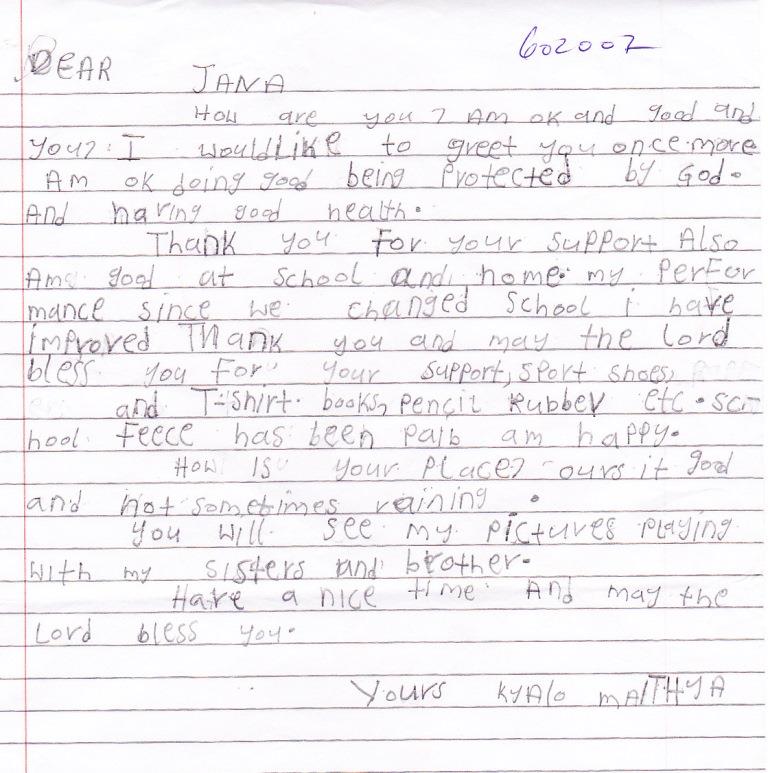 602007
DEAR JANA
How are you? Am ok and good and
you? I wouldLike to greet you once more
Am ok doing good being Protected by God.
And having good health.
Thank you For your support Also
Am good at school and home. my PerFor
mance since we changed school i have
improved Thank you and may the Lord
bless you For your support, sport shoes,
and T-shirt. books, Pencil Rubber etc. sc-
hool Feece has been Paib am happy.
How Is your Place? ours it good
and hot sometimes raining.
You will see my pictures Playing
with my sisters and brother.
Have a nice time. And may the
Lord bless you.
Yours kyalo maITHYA